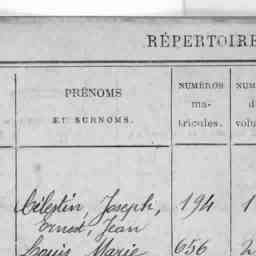 RÉPERTOIRE
PRÉNOMS
ET SURNOMS.
NUMÉROS
ma-
tricules.
NUM
d
volu
Célestin, Joseph, 194 1
Ernest, Jean
Louis Marie 656 2